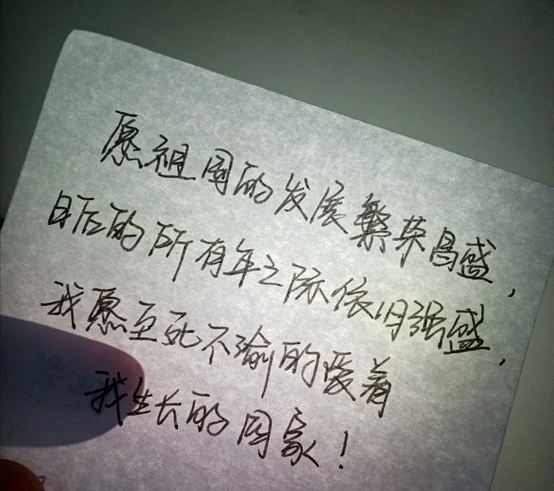 愿祖国的发展繁荣昌盛，
日后的所有年之际依旧强盛，
我愿至死不渝的爱着
我生长的国家！